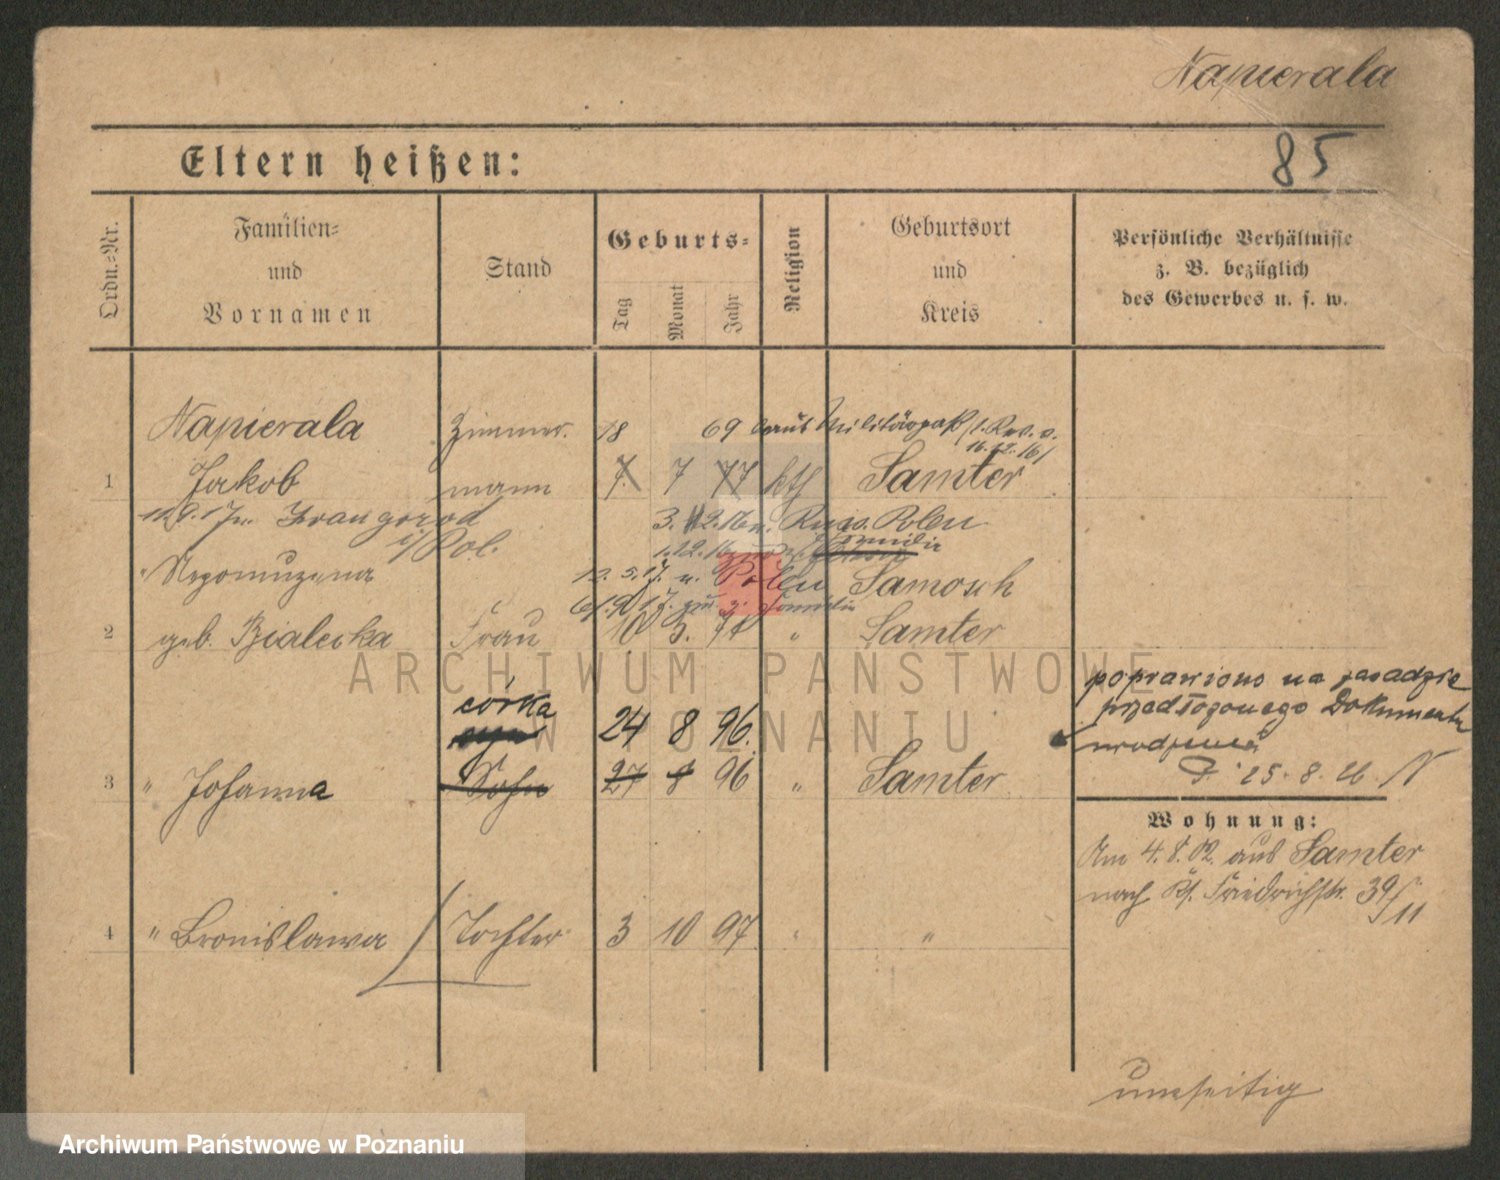 Napierala
85
Eltern heißen:
Ordn.-Nr.
Familien-
und
Vornamen
Stand
Geburts-
Tag
Monat
Jahr
Religion
Geburtsort
und
Kreis
Persönliche Verhältnisse
z. B. bezüglich
des Gewerbes u. s. w.
Napierala Zimmer. 18 69 laut Militärpaß
16.12.16/
1 Jakob mann 7. 7 77 kth Samter
Russ. Polen
i/Pol.
Nepomuzena 12.5.17. n. Polen Samosch
2 geb. Bialecka Frau 10 5. " Samter
córka 24 8 96.
3 " Johanna Sohn 27 8 96 " Samter
poprawiono na zasadzie
przedłożonego Dokumentu
urodzenia
25.8.26
Wohnung:
Am 4.8.02. aus Samter
nach Friedrichstr. 39/11
4 " Bronislawa Tochter 3 10 97 " "
umseitig
ARCHIWUM PAŃSTWOWE
W POZNANIU
Archiwum Państwowe w Poznaniu